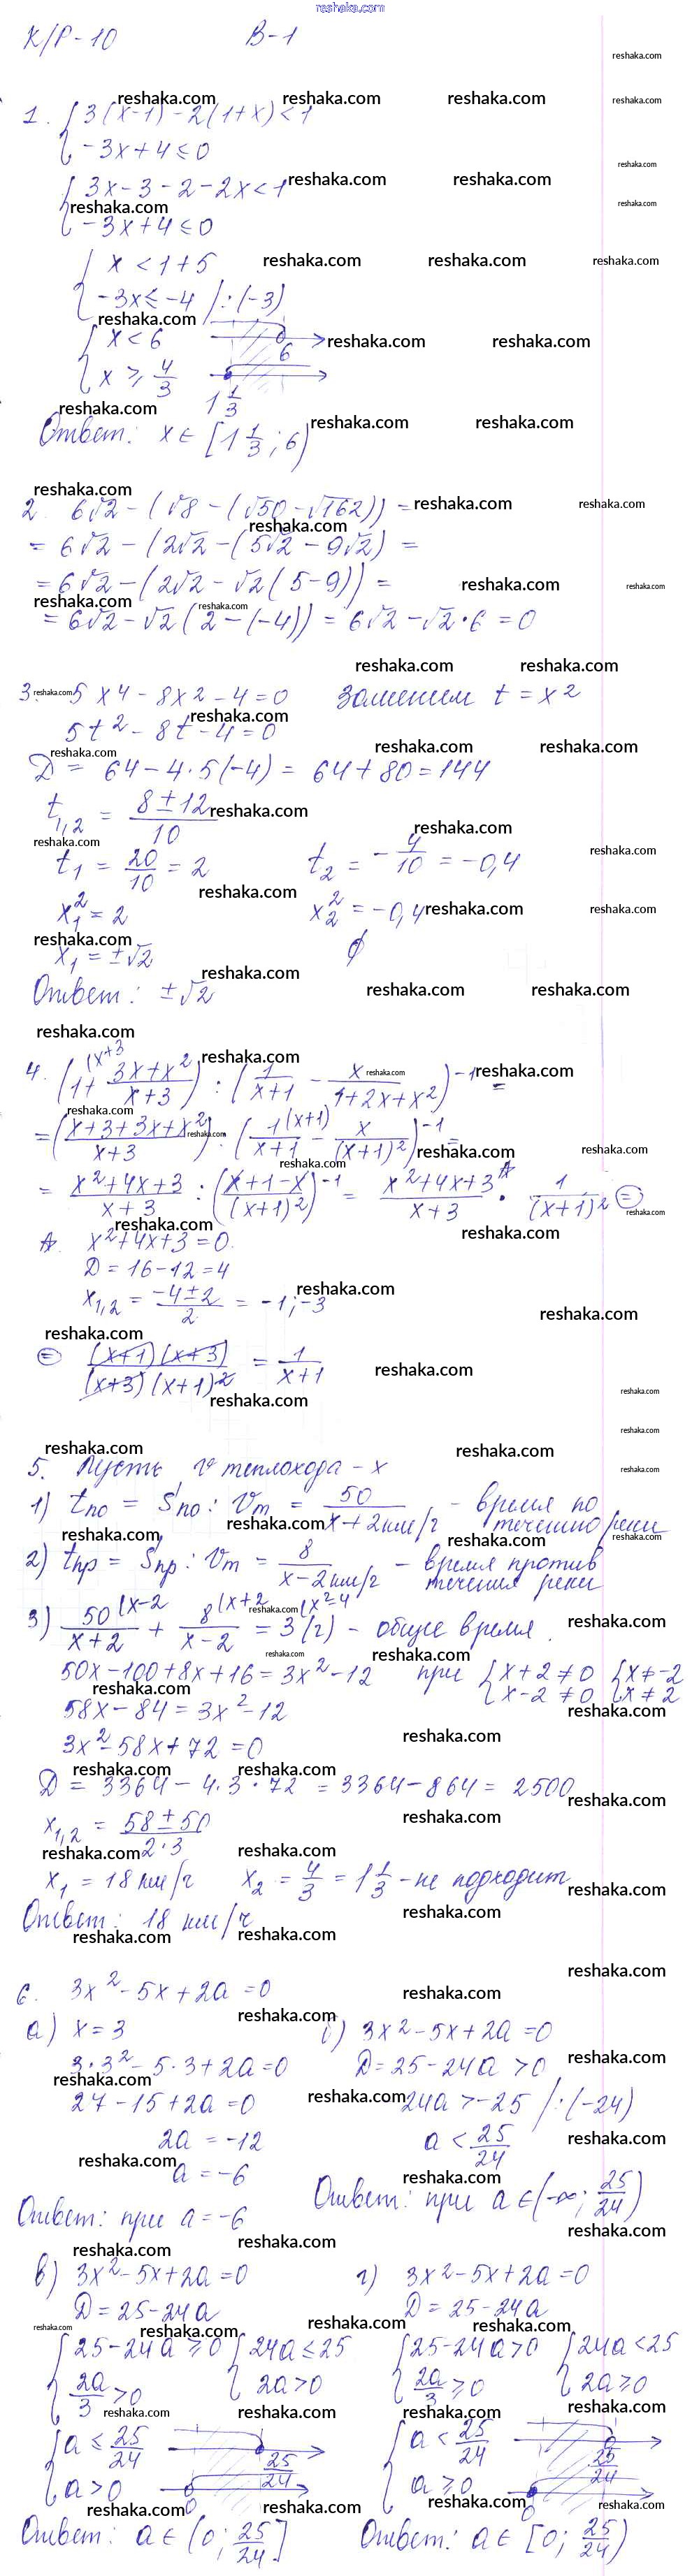 К/Р-10 В-1
1. { 3(x-1)-2(1+x)<1
-3x+4≤0
{ 3x-3-2-2x<1
-3x+4≤0
{ x<1+5
-3x≤-4 |:(-3)
{ x<6
6
x≥4/3
1 1/3
Ответ: x∈[1 1/3; 6)
2. 6√2-(√8-(√50-√162))=
=6√2-(2√2-(5√2-9√2)=
=6√2-(2√2-√2(5-9))=
=6√2-√2(2-(-4))=6√2-√2·6=0
3. 5x4-8x2-4=0 Заменим t=x2
5t2-8t-4=0
D=64-4·5(-4)=64+80=144
t1,2=(8±12)/10
t1=20/10=2 t2=-4/10=-0,4
x1^2=2 x2^2=-0,4
x1=±√2 ∅
Ответ: ±√2
4. (1+(x+3 (3x+x^2)/(x+3)):(1/(x+1)-x/(1+2x+x^2))^-1=
=((x+3+3x+x^2)/(x+3)):(1(x+1)/(x+1)-x/(x+1)^2)^-1=
=(x^2+4x+3)/(x+3):((x+1-x)/(x+1)^2)^-1=(x^2+4x+3)/(x+3)·1/(x+1)^2 =
x^2+4x+3=0.
D=16-12=4
x1,2=(-4±2)/2=-1;-3
= (x+1)(x+3)/(x+3)(x+1)^2=1/(x+1)
5. Пусть v теплохода - x
1) tпо=Sпо:Vт=50/(x+2км/г - время по
течению реки
2) tпр=Sпр:Vт=8/(x-2км/г - время против
течения реки
3) 50(x-2/(x+2)+8(x+2/(x-2)=3(г)(x^2-4 - общее время.
50x-100+8x+16=3x^2-12 при {x+2≠0 {x≠-2
x-2≠0 x≠2
58x-84=3x^2-12
3x^2-58x+72=0
D=3364-4·3·72=3364-864=2500
x1,2=(58±50)/2·3
x1=18км/г x2=4/3=1 1/3-не подходит
Ответ: 18 км/ч
6. 3x^2-5x+2a=0
а) x=3 б) 3x^2-5x+2a=0
3·3^2-5·3+2a=0 D=25-24a>0
27-15+2a=0 -24a>-25 |:(-24)
2a=-12 a<25/24
a=-6
Ответ: при a∈(-∞; 25/24)
Ответ: при a=-6
в) 3x^2-5x+2a=0 г) 3x^2-5x+2a=0
D=25-24a D=25-24a
{25-24a≥0 {24a≤25 {25-24a>0 {24a<25
2a/3>0 2a>0 2a/3≥0 2a≥0
{a≤25/24 25/24 {a<25/24 25/24
a>0 0 a≥0 0
Ответ: a∈(0; 25/24] Ответ: a∈[0; 25/24)
reshaka.com